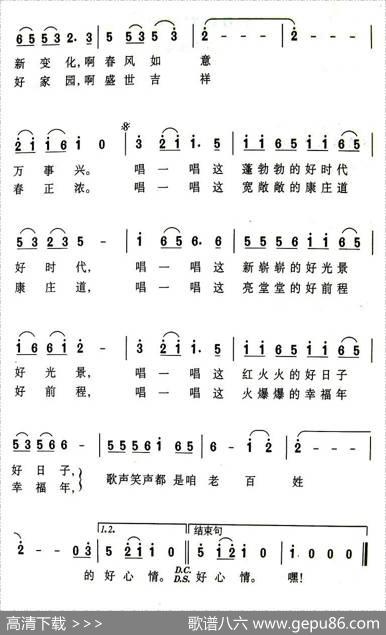 6 5 5 3 2· 3 | 5 5 3 5 5 3 | 2 - - - | 2 - - - |
新 变 化, 啊 春 风 如 意
好 家 园, 啊 盛 世 吉 祥
2 1 1 6 1 0 | 3 2 1 1· 5 | 1 1 6 5 1 1 6 5 |
万 事 兴。 唱 一 唱 这 蓬 勃 勃 的 好 时 代
春 正 浓。 唱 一 唱 这 宽 敞 敞 的 康 庄 道
5 3 2 3 5 - | 1 6 5 6· 6 | 5 5 5 6 1 1 6 5 |
好 时 代, 唱 一 唱 这 新 崭 崭 的 好 光 景
康 庄 道, 唱 一 唱 这 亮 堂 堂 的 好 前 程
1 6 6 1 2 - | 3 2 1 1· 5 | 1 1 6 5 1 1 6 5 |
好 光 景, 唱 一 唱 这 红 火 火 的 好 日 子
好 前 程, 唱 一 唱 这 火 爆 爆 的 幸 福 年
5 3 5 6 6 - | 5 5 5 6 1 6 5 | 6 - 1 2 | 2 - - - |
好 日 子,
歌 声 笑 声 都 是 咱 老 百 姓
幸 福 年,
1.2. 结束句
2 - - 0 3 | 5 2 1 1 0 | 5 1 2 1 0 | 1· 0 0 0 |
的 好 心 情。 D.C. D.S. 好 心 情。 嘿!
高清下载 >>> 歌谱八六 www.gepu86.com